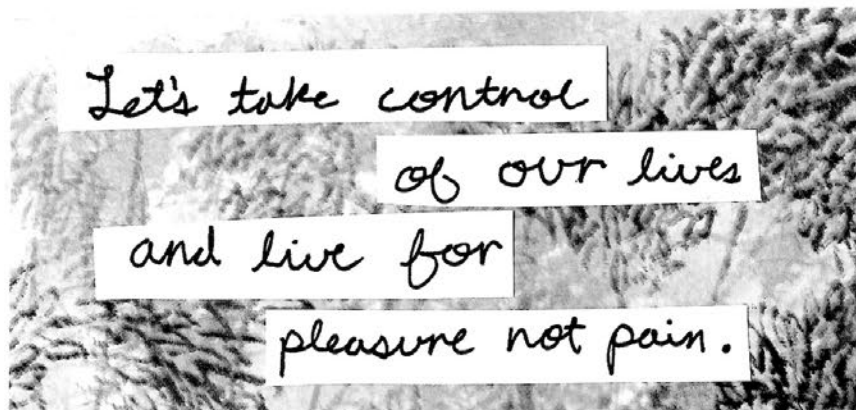 Let's take control
of our lives
and live for
pleasure not pain.